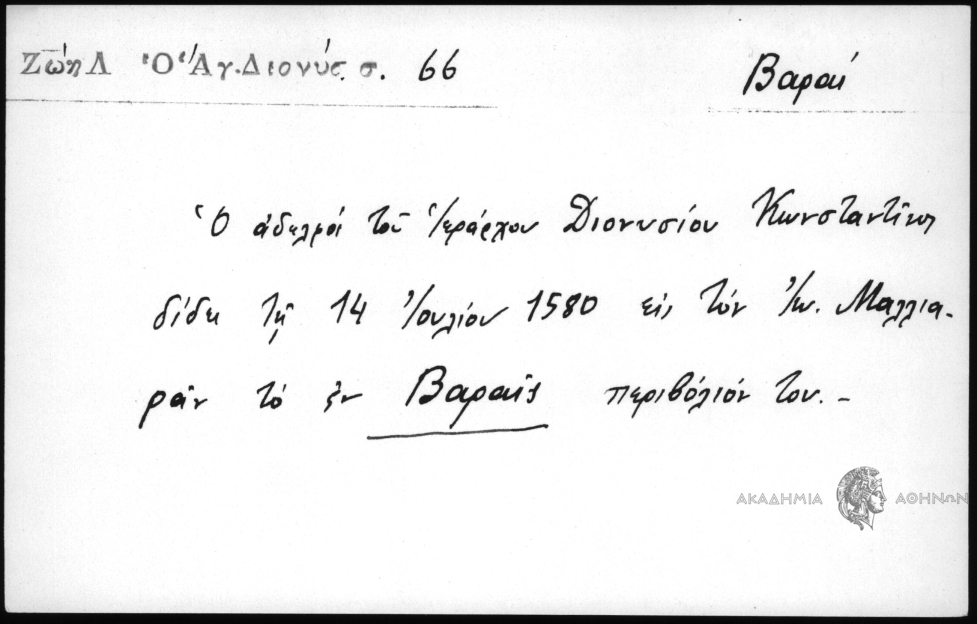 Ζώη Λ Ὁ Ἅγ. Διονύσ. σ. 66
Βαραί
Ὁ ἀδελφοί τοῦ Ἱεράρχου Διονυσίου Κωνσταντῖνος
δίδει τῇ 14 Ἰουλίου 1580 εἰς τόν Ἰω. Μαλλια-
ρᾶν τό ἐν Βαραῖς περιβόλιόν του. -
ΑΚΑΔΗΜΙΑ ΑΘΗΝΩΝ